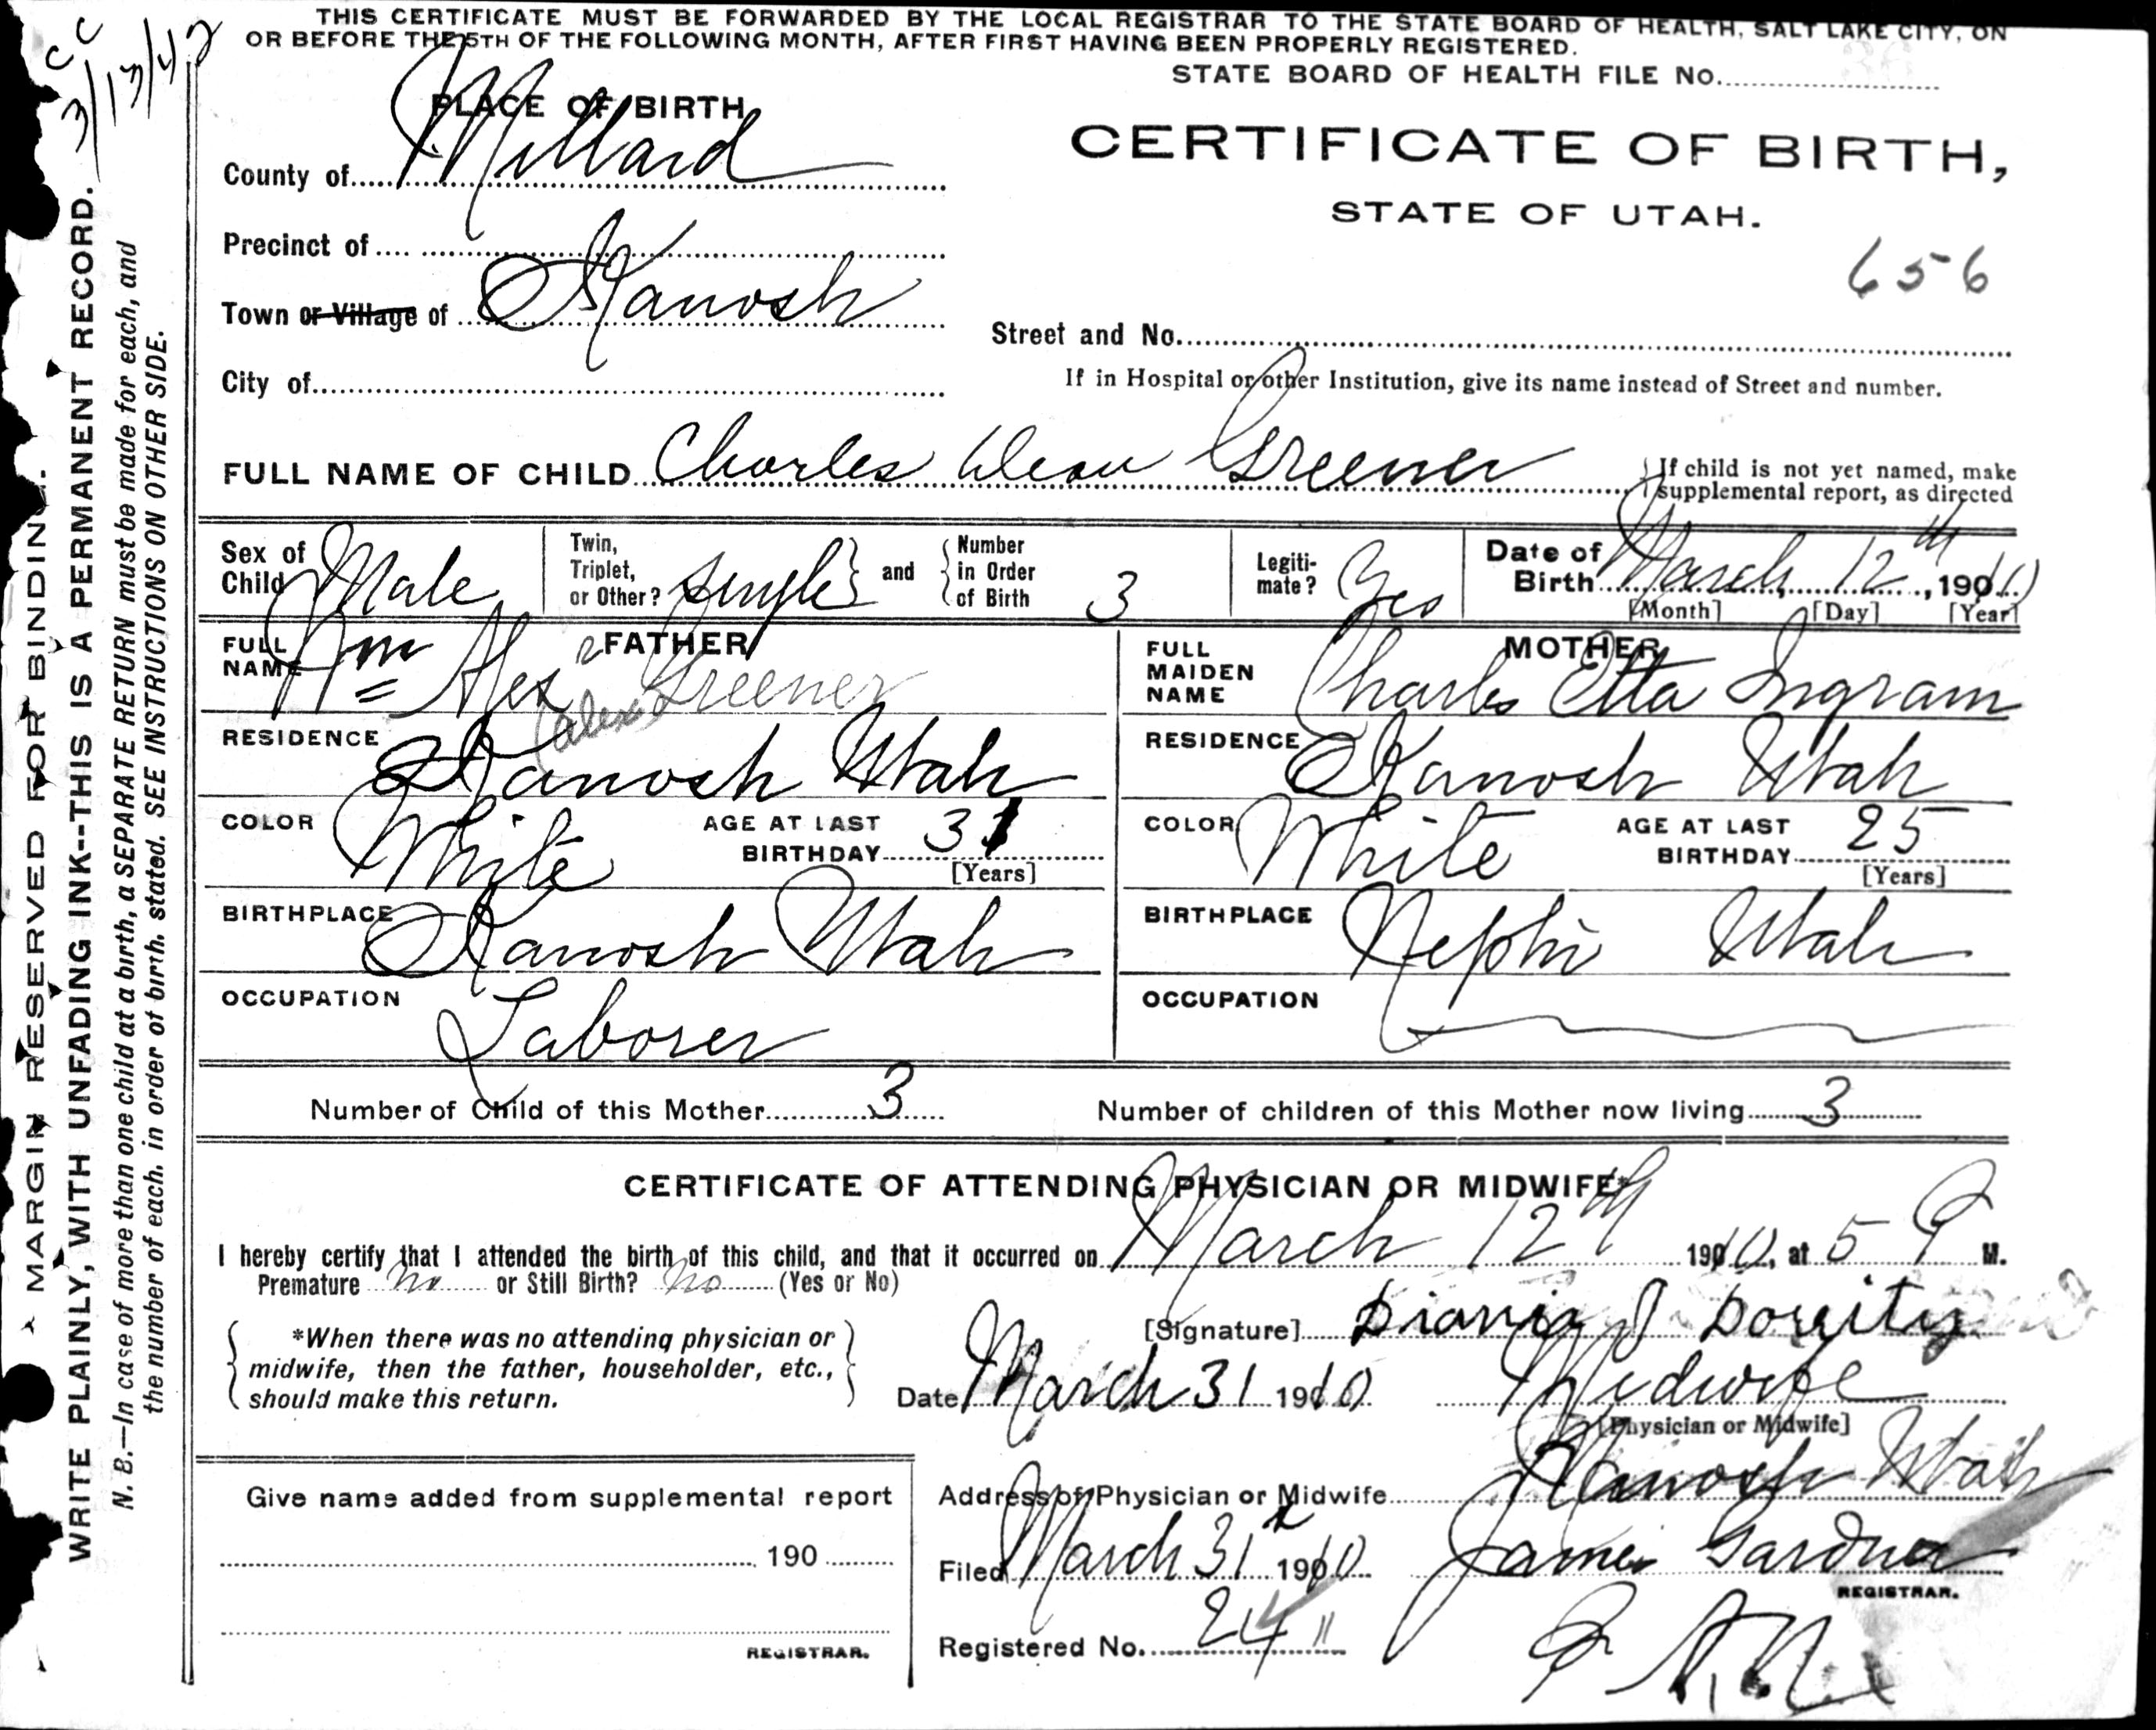 THIS CERTIFICATE MUST BE FORWARDED BY THE LOCAL REGISTRAR TO THE STATE BOARD OF HEALTH, SALT LAKE CITY, ON
OR BEFORE THE 5TH OF THE FOLLOWING MONTH, AFTER FIRST HAVING BEEN PROPERLY REGISTERED.
STATE BOARD OF HEALTH FILE No.
CC
3/13/42
PLACE OF BIRTH
County of Millard
CERTIFICATE OF BIRTH,
STATE OF UTAH.
Precinct of
656
Town or Village of Kanosh
Street and No.
City of
If in Hospital or other Institution, give its name instead of Street and number.
FULL NAME OF CHILD Charles Dean Greener
If child is not yet named, make
supplemental report, as directed
Sex of Child Male
Twin, Triplet, or Other? Single and Number in Order of Birth 3
Legitimate? Yes
Date of Birth March 12th, 1910
[Month] [Day] [Year]
FATHER
FULL NAME Wm Alex Greener
(Alex
MOTHER
FULL MAIDEN NAME Charles Etta Ingram
RESIDENCE Kanosh Utah
RESIDENCE Kanosh Utah
COLOR White AGE AT LAST BIRTHDAY 31 [Years]
COLOR White AGE AT LAST BIRTHDAY 25 [Years]
BIRTHPLACE Kanosh Utah
BIRTHPLACE Nephi Utah
OCCUPATION Laborer
OCCUPATION
Number of Child of this Mother 3
Number of children of this Mother now living 3
CERTIFICATE OF ATTENDING PHYSICIAN OR MIDWIFE*
I hereby certify that I attended the birth of this child, and that it occurred on March 12th 1910, at 5 P M.
Premature no or Still Birth? no (Yes or No)
*When there was no attending physician or
midwife, then the father, householder, etc.,
should make this return.
[Signature]
Date March 31 1910
Midwife
[Physician or Midwife]
Address of Physician or Midwife Kanosh Utah
Filed March 31 1910
James Gardner
REGISTRAR.
Registered No. 24
Give name added from supplemental report
190
REGISTRAR.
MARGIN RESERVED FOR BINDING.
WRITE PLAINLY, WITH UNFADING INK--THIS IS A PERMANENT RECORD.
N. B.—In case of more than one child at a birth, a SEPARATE RETURN must be made for each, and
the number of each, in order of birth, stated. SEE INSTRUCTIONS ON OTHER SIDE.